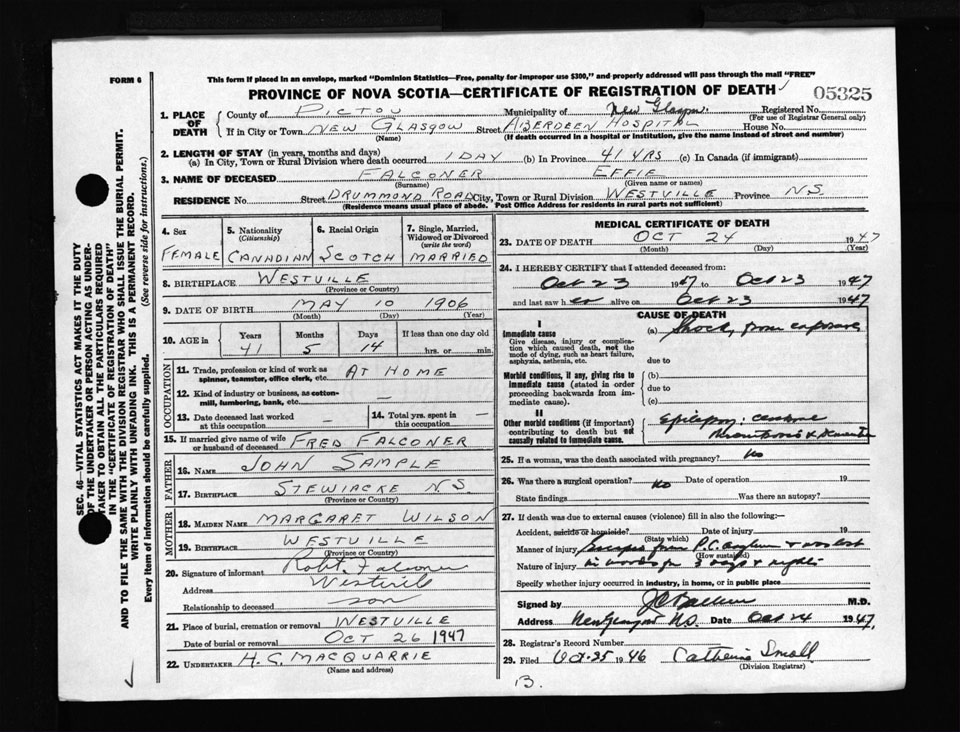 FORM 6
This form if placed in an envelope, marked "Dominion Statistics—Free, penalty for improper use $300," and properly addressed will pass through the mail "FREE"
PROVINCE OF NOVA SCOTIA—CERTIFICATE OF REGISTRATION OF DEATH 05325
1. PLACE OF DEATH
County of PICTOU Municipality of New Glasgow. Registered No.
(For use of Registrar General only)
If in City or Town NEW GLASGOW Street ABERDEEN HOSPITAL House No.
(Name) (If death occurred in a hospital or institution, give the name instead of street and number)
2. LENGTH OF STAY (in years, months and days)
(a) In City, Town or Rural Division where death occurred 1 DAY (b) In Province 41 YRS (c) In Canada (if immigrant)
3. NAME OF DECEASED FALCONER EFFIE
(Surname) (Given name or names)
RESIDENCE No. Street DRUMMOND ROAD City, Town or Rural Division WESTVILLE Province N.S.
(Residence means usual place of abode. Post Office Address for residents in rural parts not sufficient)
4. Sex
FEMALE
5. Nationality
(Citizenship)
CANADIAN
6. Racial Origin
SCOTCH
7. Single, Married, Widowed or Divorced
(write the word)
MARRIED
8. BIRTHPLACE WESTVILLE
(Province or Country)
9. DATE OF BIRTH MAY 10 1906
(Month) (Day) (Year)
10. AGE in Years Months Days If less than one day old
41 5 14 hrs. or min.
OCCUPATION
11. Trade, profession or kind of work as spinner, teamster, office clerk, etc. AT HOME
12. Kind of industry or business, as cotton-mill, lumbering, bank, etc. —
13. Date deceased last worked at this occupation —
14. Total yrs. spent in this occupation —
15. If married give name of wife or husband of deceased FRED FALCONER
FATHER
16. NAME JOHN SAMPLE
17. BIRTHPLACE STEWIACKE N.S.
(Province or Country)
MOTHER
18. MAIDEN NAME MARGARET WILSON
19. BIRTHPLACE WESTVILLE
(Province or Country)
20. Signature of informant Robt. Falconer
Address Westville
Relationship to deceased son
21. Place of burial, cremation or removal WESTVILLE
Date of burial or removal OCT 26 1947
22. UNDERTAKER H. G. MACQUARRIE
(Name and address)
MEDICAL CERTIFICATE OF DEATH
23. DATE OF DEATH OCT 24 1947
(Month) (Day) (Year)
24. I HEREBY CERTIFY that I attended deceased from:
Oct 23 1947 to Oct 23 1947
and last saw her alive on Oct 23 1947
CAUSE OF DEATH
I
Immediate cause
Give disease, injury or complication which caused death, not the mode of dying, such as heart failure, asphyxia, asthenia, etc.
(a) Shock, from exposure
due to
Morbid conditions, if any, giving rise to immediate cause (stated in order proceeding backwards from immediate cause).
(b)
due to
(c)
II
Other morbid conditions (if important) contributing to death but not causally related to immediate cause.
Epilepsy:
25. If a woman, was the death associated with pregnancy? No
26. Was there a surgical operation? No Date of operation 19
State findings Was there an autopsy?
27. If death was due to external causes (violence) fill in also the following:
Accident, suicide or homicide? Date of injury 19
(State which)
Manner of injury Escaped from P.C. asylum & was lost
(How sustained)
Nature of injury in woods for 3 days & nights
Specify whether injury occurred in industry, in home, or in public place
Signed by M.D.
Address New Glasgow N.S. Date Oct 24 1947.
28. Registrar's Record Number
29. Filed Oct. 25 1946 Catherine Small
(Division Registrar)
B.
SEC. 46—VITAL STATISTICS ACT MAKES IT THE DUTY
OF THE UNDERTAKER OR PERSON ACTING AS UNDER-
TAKER TO OBTAIN ALL THE PARTICULARS REQUIRED
IN THE "CERTIFICATE OF REGISTRATION OF DEATH"
AND TO FILE THE SAME WITH THE DIVISION REGISTRAR WHO SHALL ISSUE THE BURIAL PERMIT.
WRITE PLAINLY WITH UNFADING INK. THIS IS A PERMANENT RECORD.
Every item of information should be carefully supplied. (See reverse side for instructions.)